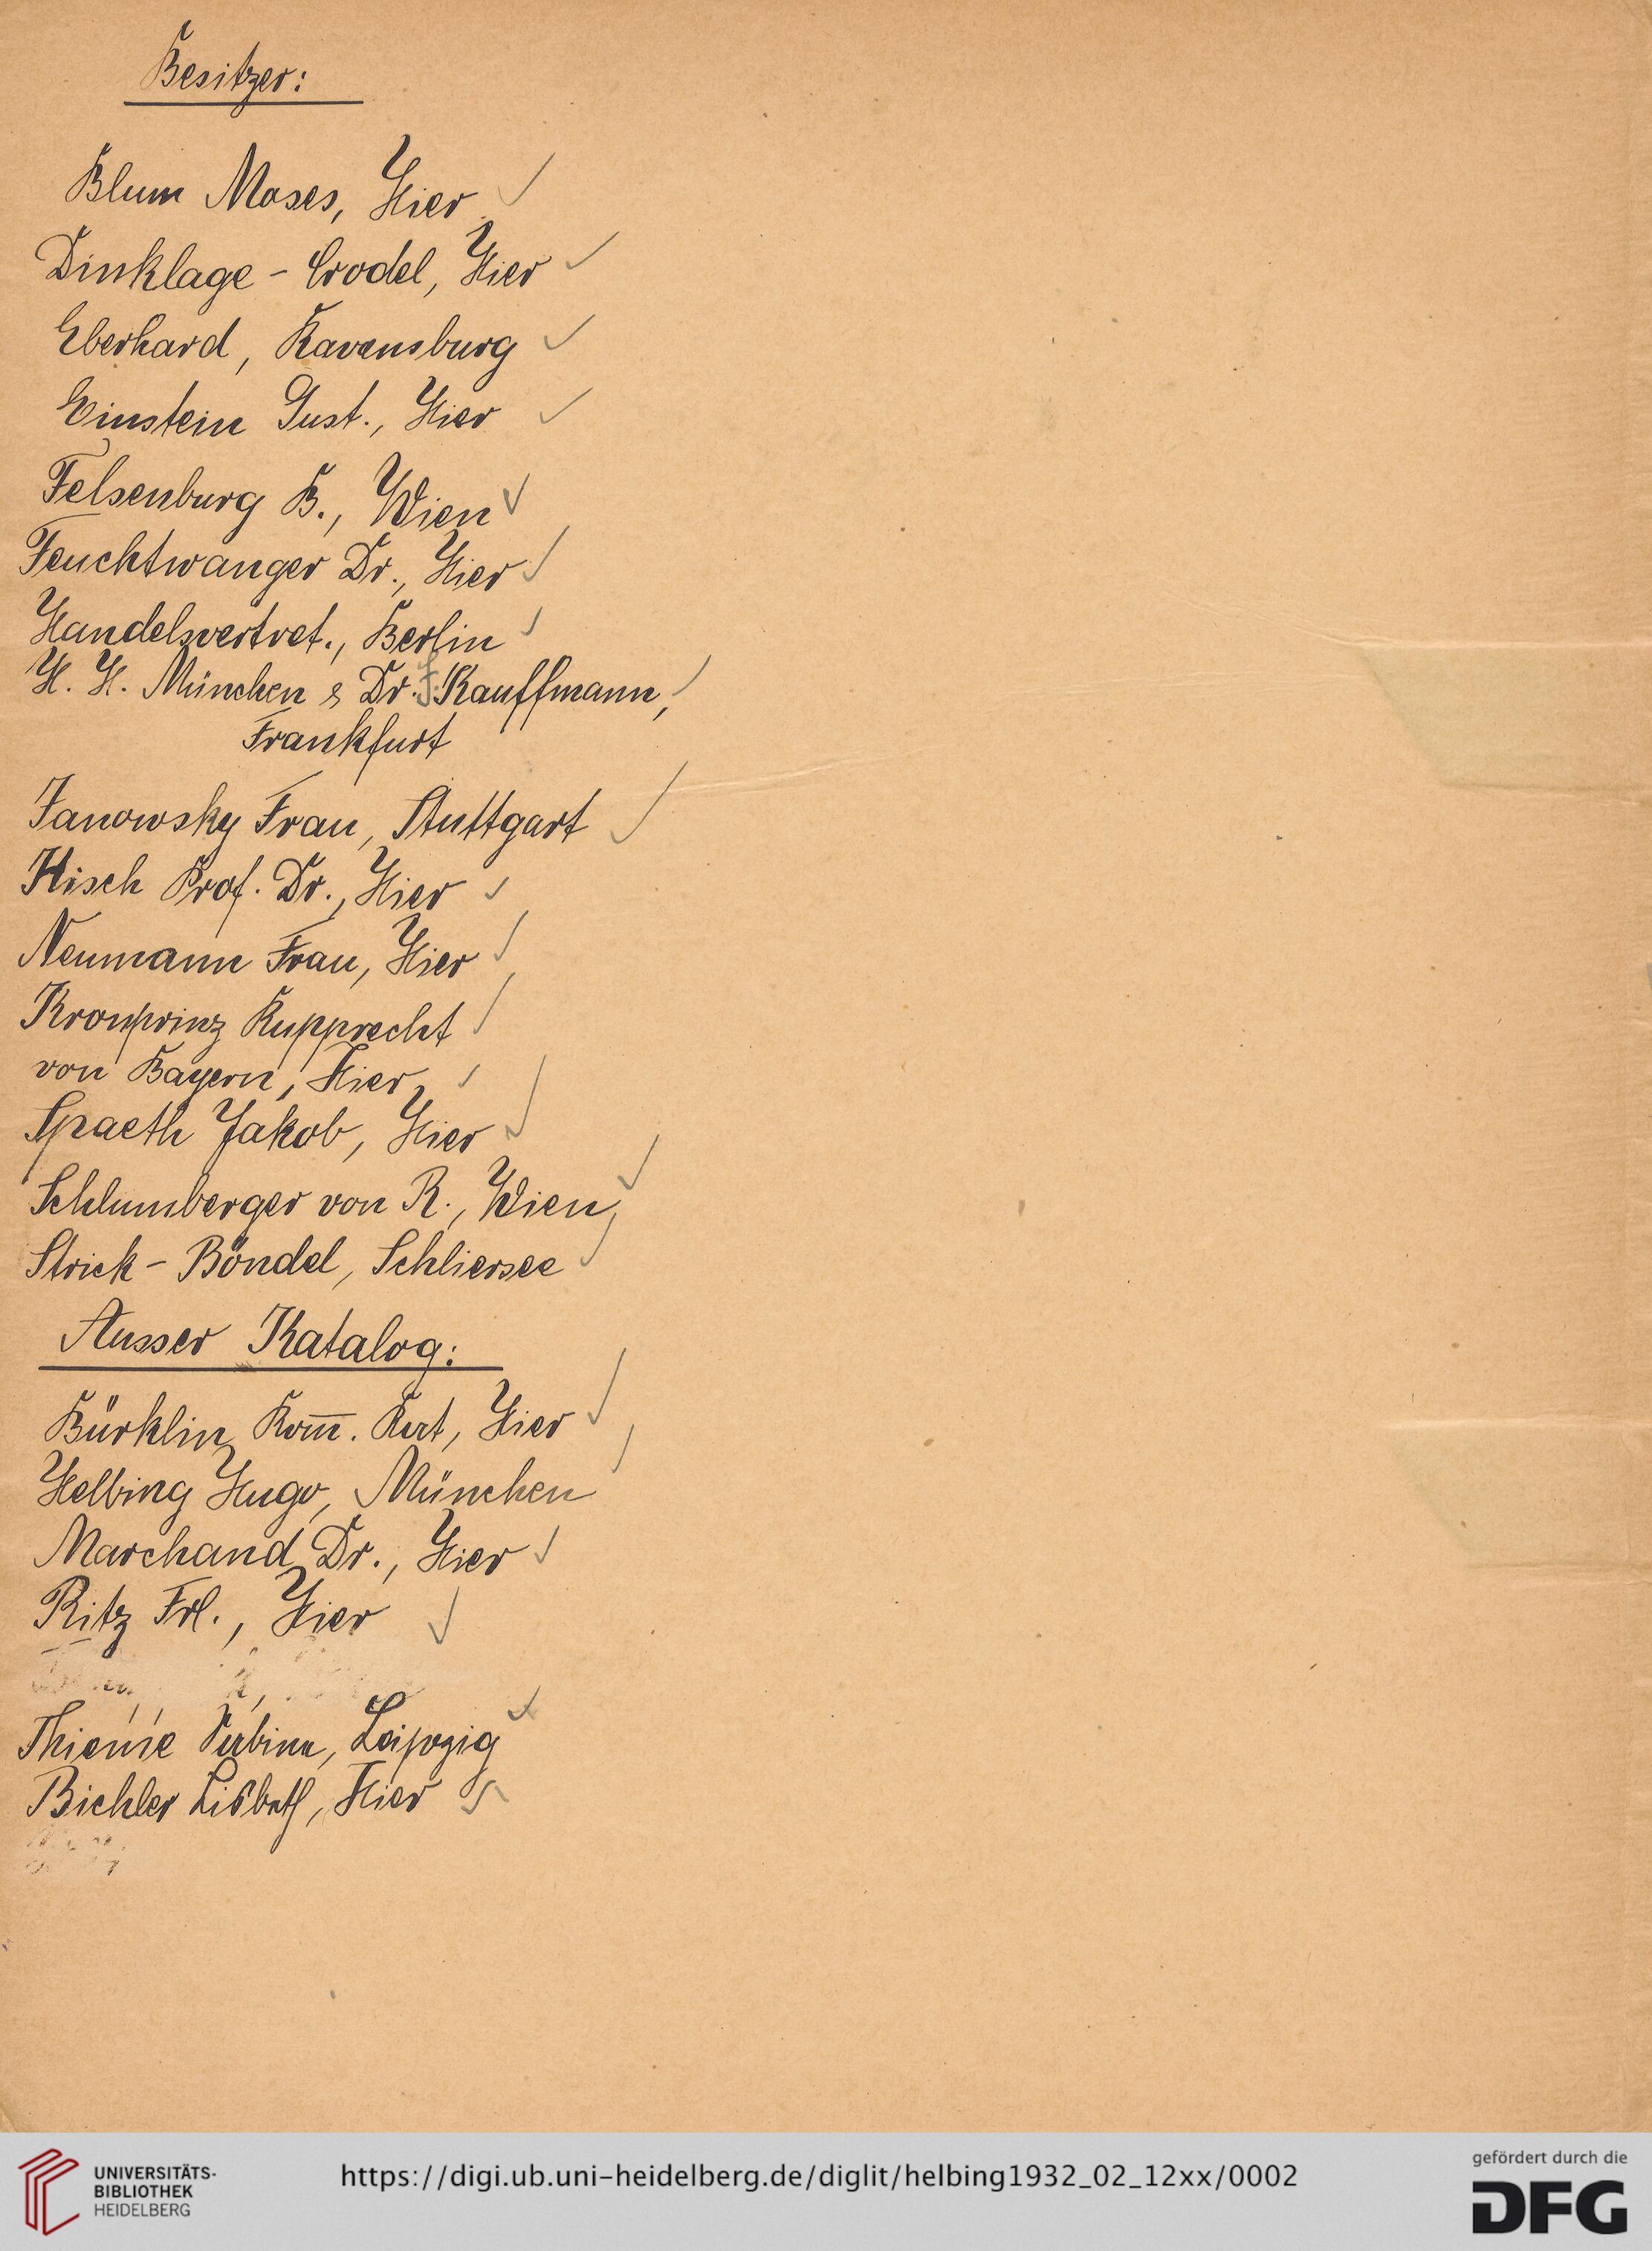 Besitzer:
Blum Moses, Hier
Dinklage - Crodel, Hier
Eberhard, Ravensburg
Einstein Gust., Hier
Felsenburg B., Wien
Feuchtwanger Dr., Hier
Handelsvertret., Berlin
H. H. München & Dr. F. Kauffmann,
Frankfurt
Janowsky Frau, Stuttgart
Kisch Prof. Dr., Hier
Neumann Frau, Hier
Kronprinz Rupprecht
von Bayern, Hier
Spaeth Jakob, Hier
Schlumberger von R., Wien
Strick - Böndel, Schliersee
Ausser Katalog:
Bürklin, Kom̅. Rat, Hier
Helbing Hugo, München
Marchand Dr., Hier
Ritz Frl., Hier
Thieme, Leipzig
Bichler Lisbeth, Hier
UNIVERSITÄTS-
BIBLIOTHEK
HEIDELBERG
https://digi.ub.uni-heidelberg.de/diglit/helbing1932_02_12xx/0002
gefördert durch die
DFG